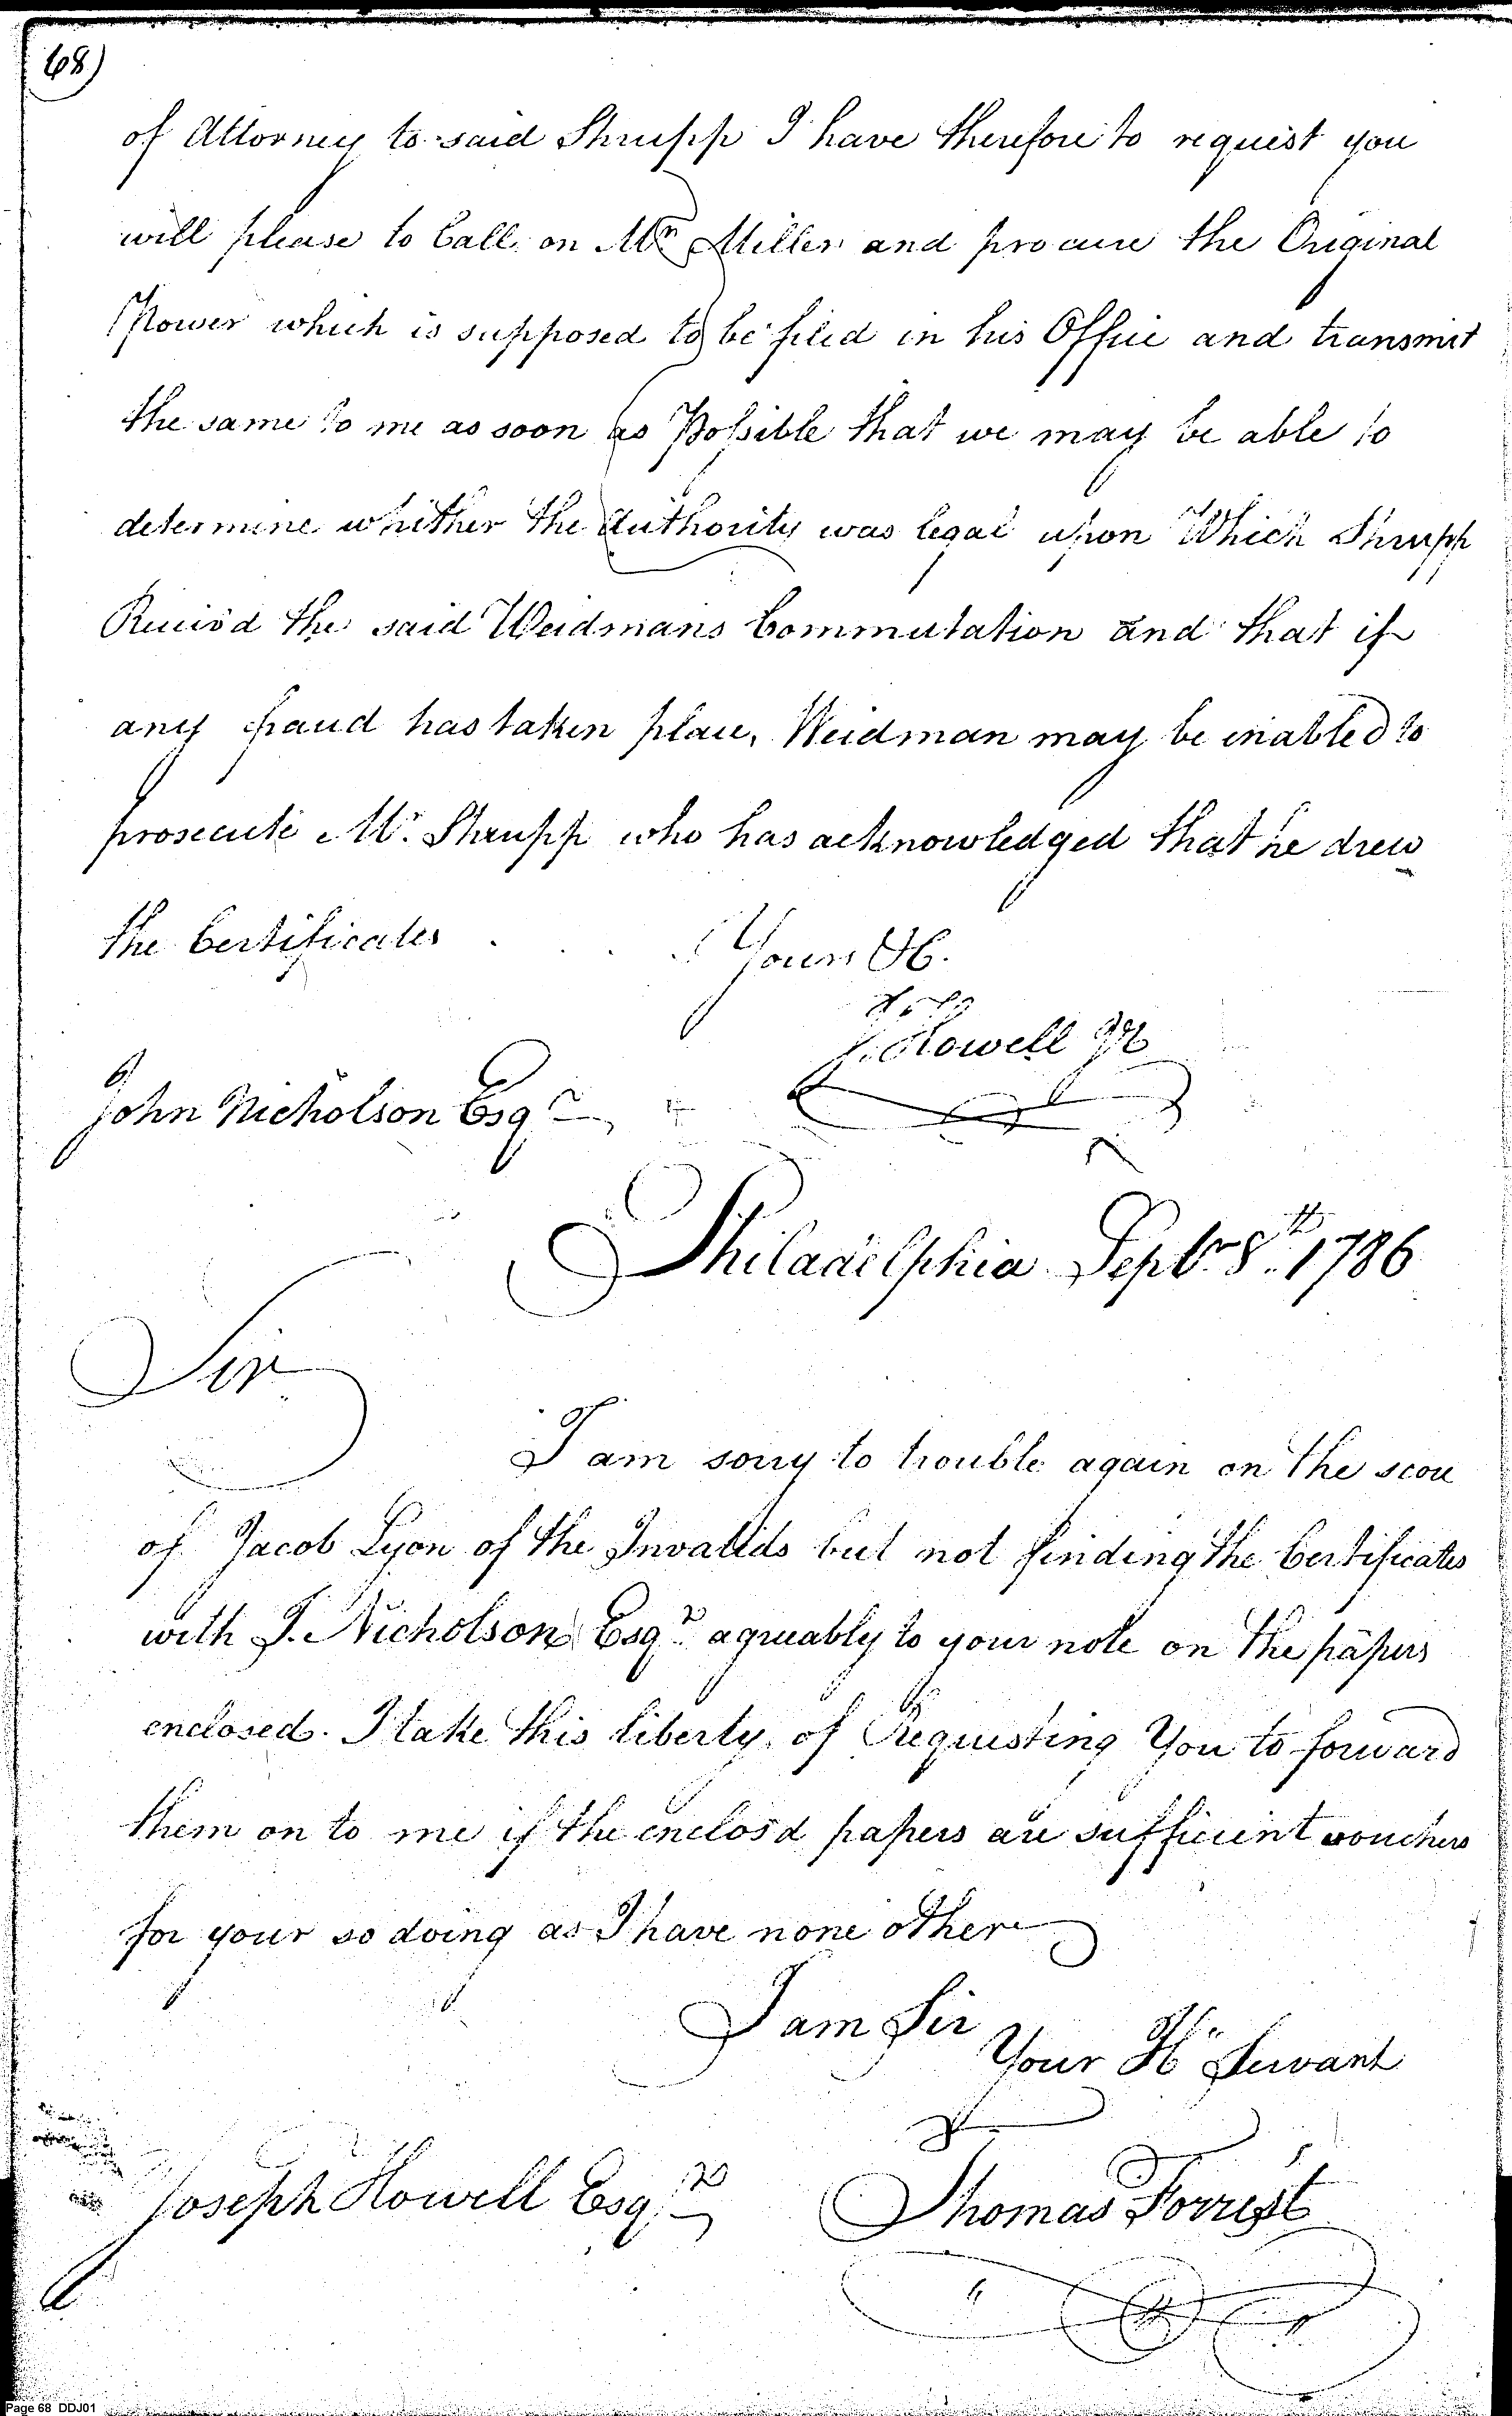 68)
of Attorney to said Shrupp I have therefore to request you
will please to Call on Mr Miller and procure the Original
Power which is supposed to be filed in his Office and transmit
the same to me as soon as Possible that we may be able to
determine whither the Authority was legal upon Which Shrupp
Reciev'd the said Weidmans Commutation and that if
any fraud has taken place, Weidman may be enabled to
prosecute Mr. Shrupp who has acknowledged that he drew
the Certificates . . . . Yours &c.
J. Howell Jr
John Nicholson Esqr
Philadelphia Septr 8th 1786
Sir
I am sorry to trouble again on the score
of Jacob Lyon of the Invalids but not finding the Certificates
with J. Nicholson Esqr agreeably to your note on the papers
enclosed. I take this liberty of Requesting You to forward
them on to me if the enclos'd papers are sufficient vouchers
for your so doing as I have none other
I am Sir
Your H Servant
Joseph Howell Esqr
Thomas Forrest
Page 68 DDJ01